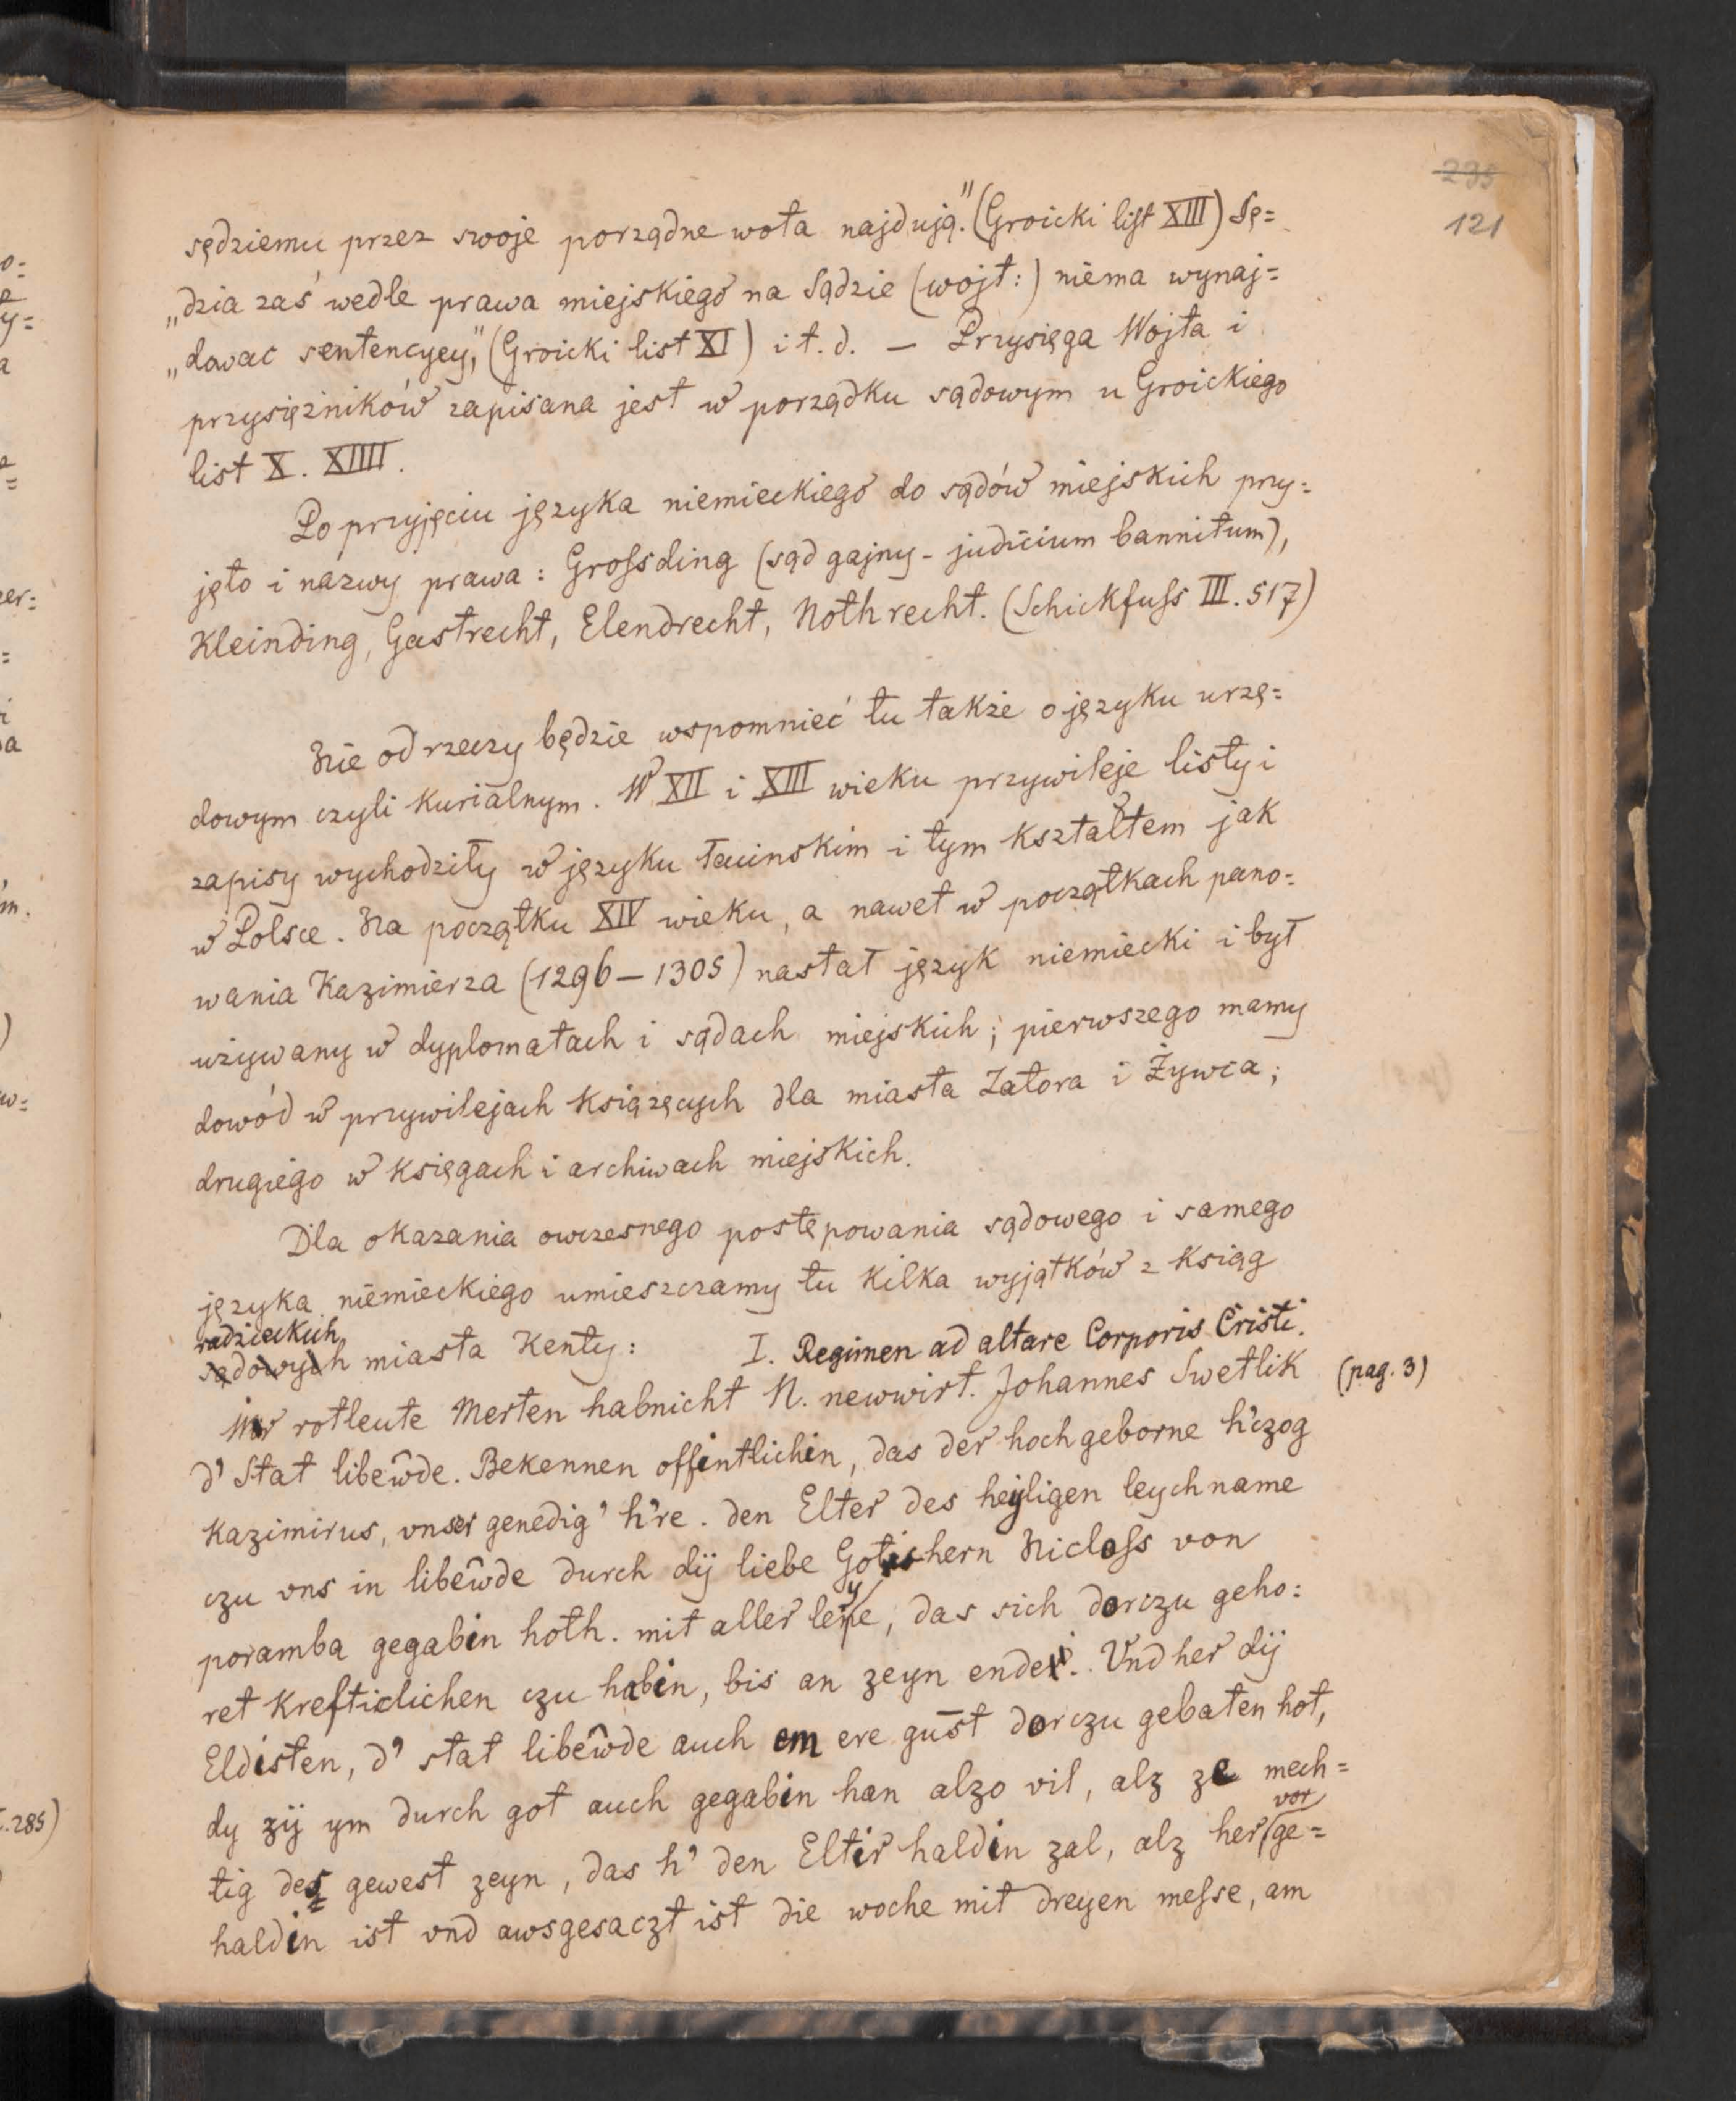 235
121
sędziemu przez swoje porządne wota najdują." (Groicki list XIII) Sę=
„dzia zaś wedle prawa miejskiego na Sądzie (wojt:) niema wynaj=
„dować sentencyey," (Groicki list XI) i t. d. — Przysięga Wojta i
przysiężników zapisana jest w porządku sądowym u Groickiego
list X. XIIII.
Po przyjęciu języka niemieckiego do sądów miejskich przy=
jęto i nazwy prawa: Grossding (sąd gajny - judicium bannitum),
Kleinding, Gastrecht, Elendrecht, Nothrecht. (Schickfuss III. 517)
Nie od rzeczy będzie wspomnieć tu także o języku urzę=
dowym czyli kurialnym. W XII i XIII wieku przywileje listy i
zapisy wychodziły w języku łacinskim i tym kształtem jak
w Polsce. Na początku XIV wieku, a nawet w początkach pano=
wania Kazimierza (1296–1305) nastał język niemiecki i był
używany w dyplomatach i sądach miejskich; pierwszego mamy
dowód w przywilejach książęcych dla miasta Zatora i Żywca;
drugiego w księgach i archiwach miejskich.
Dla okazania owczesnego postępowania sądowego i samego
języka niemieckiego umieszczamy tu kilka wyjątków z ksiąg
radzieckich
sądowych miasta Kenty: I. Regimen ad altare Corporis Cristi.
Wir rotleute Merten habnicht N. newwirt. Johannes Swetlik (pag. 3)
d' Stat libeŵde. Bekennen offintlichin, das der hochgeborne h'czog
Kazimirus, vnser genedig' h're. den Elter des heyligen leychname
czu vns in libeŵde durch dij liebe Gotis hern Nicloss von
poramba gegabin hoth. mit aller leye, das sich dorczu geho=
ret krefticlichen czu habin, bis an zeyn ende. Vnd her dij
Eldisten, d' stat libeŵde auch em ere gūst dorczu gebaten hot,
dy zij ym durch got auch gegabin han alzo vil, alz ze mech=
tig des gewest zeyn, das h' den Eltir haldin zal, alz her vor ge=
haldin ist vnd awsgesaczt ist die woche mit dreyen messe, am